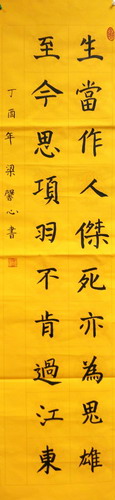 生當作人傑死亦為鬼雄
至今思項羽不肯過江東
丁酉年 梁馨心書